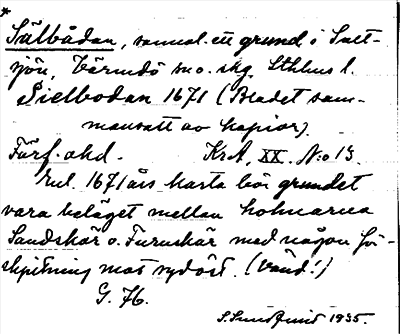 Sälbådan, sannol. ett grund i Salt-
sjön, Värmdö sn o. skg, Sthlms l.
Sielbodan 1671 (Bladet sam-
mansatt av kopior).
Förf. okd. KrA, XX. N:o 13.
Enl. 1671 års karta bör grundet
vara beläget mellan holmarna
Sandskär o. Furuskär med någon för-
skjutning mot sydöst. (Vänd!)
G. Hb.
S. Sundqvist 1935.